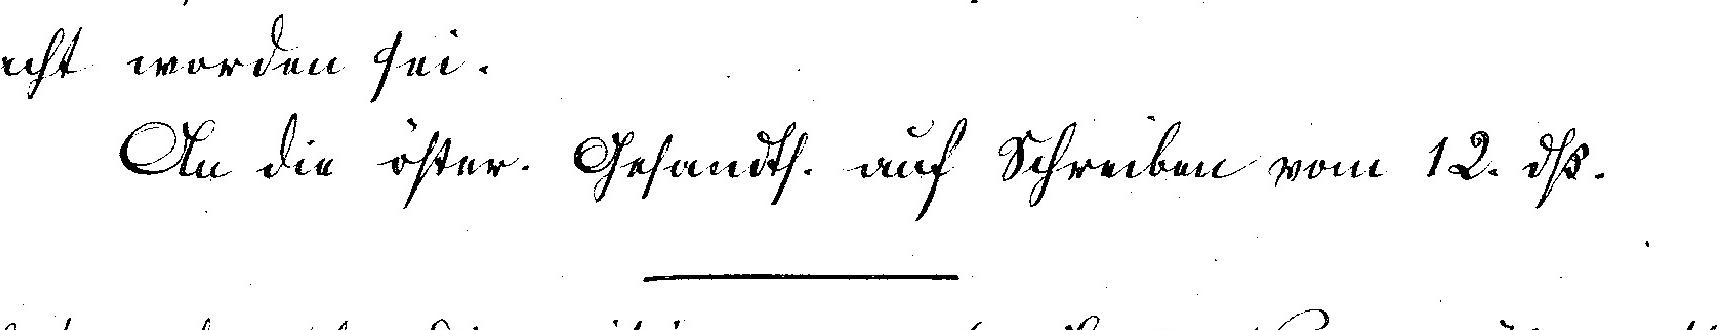 acht worden sei.
An die öster. Gesandts. auf Schreiben vom 12. dß.